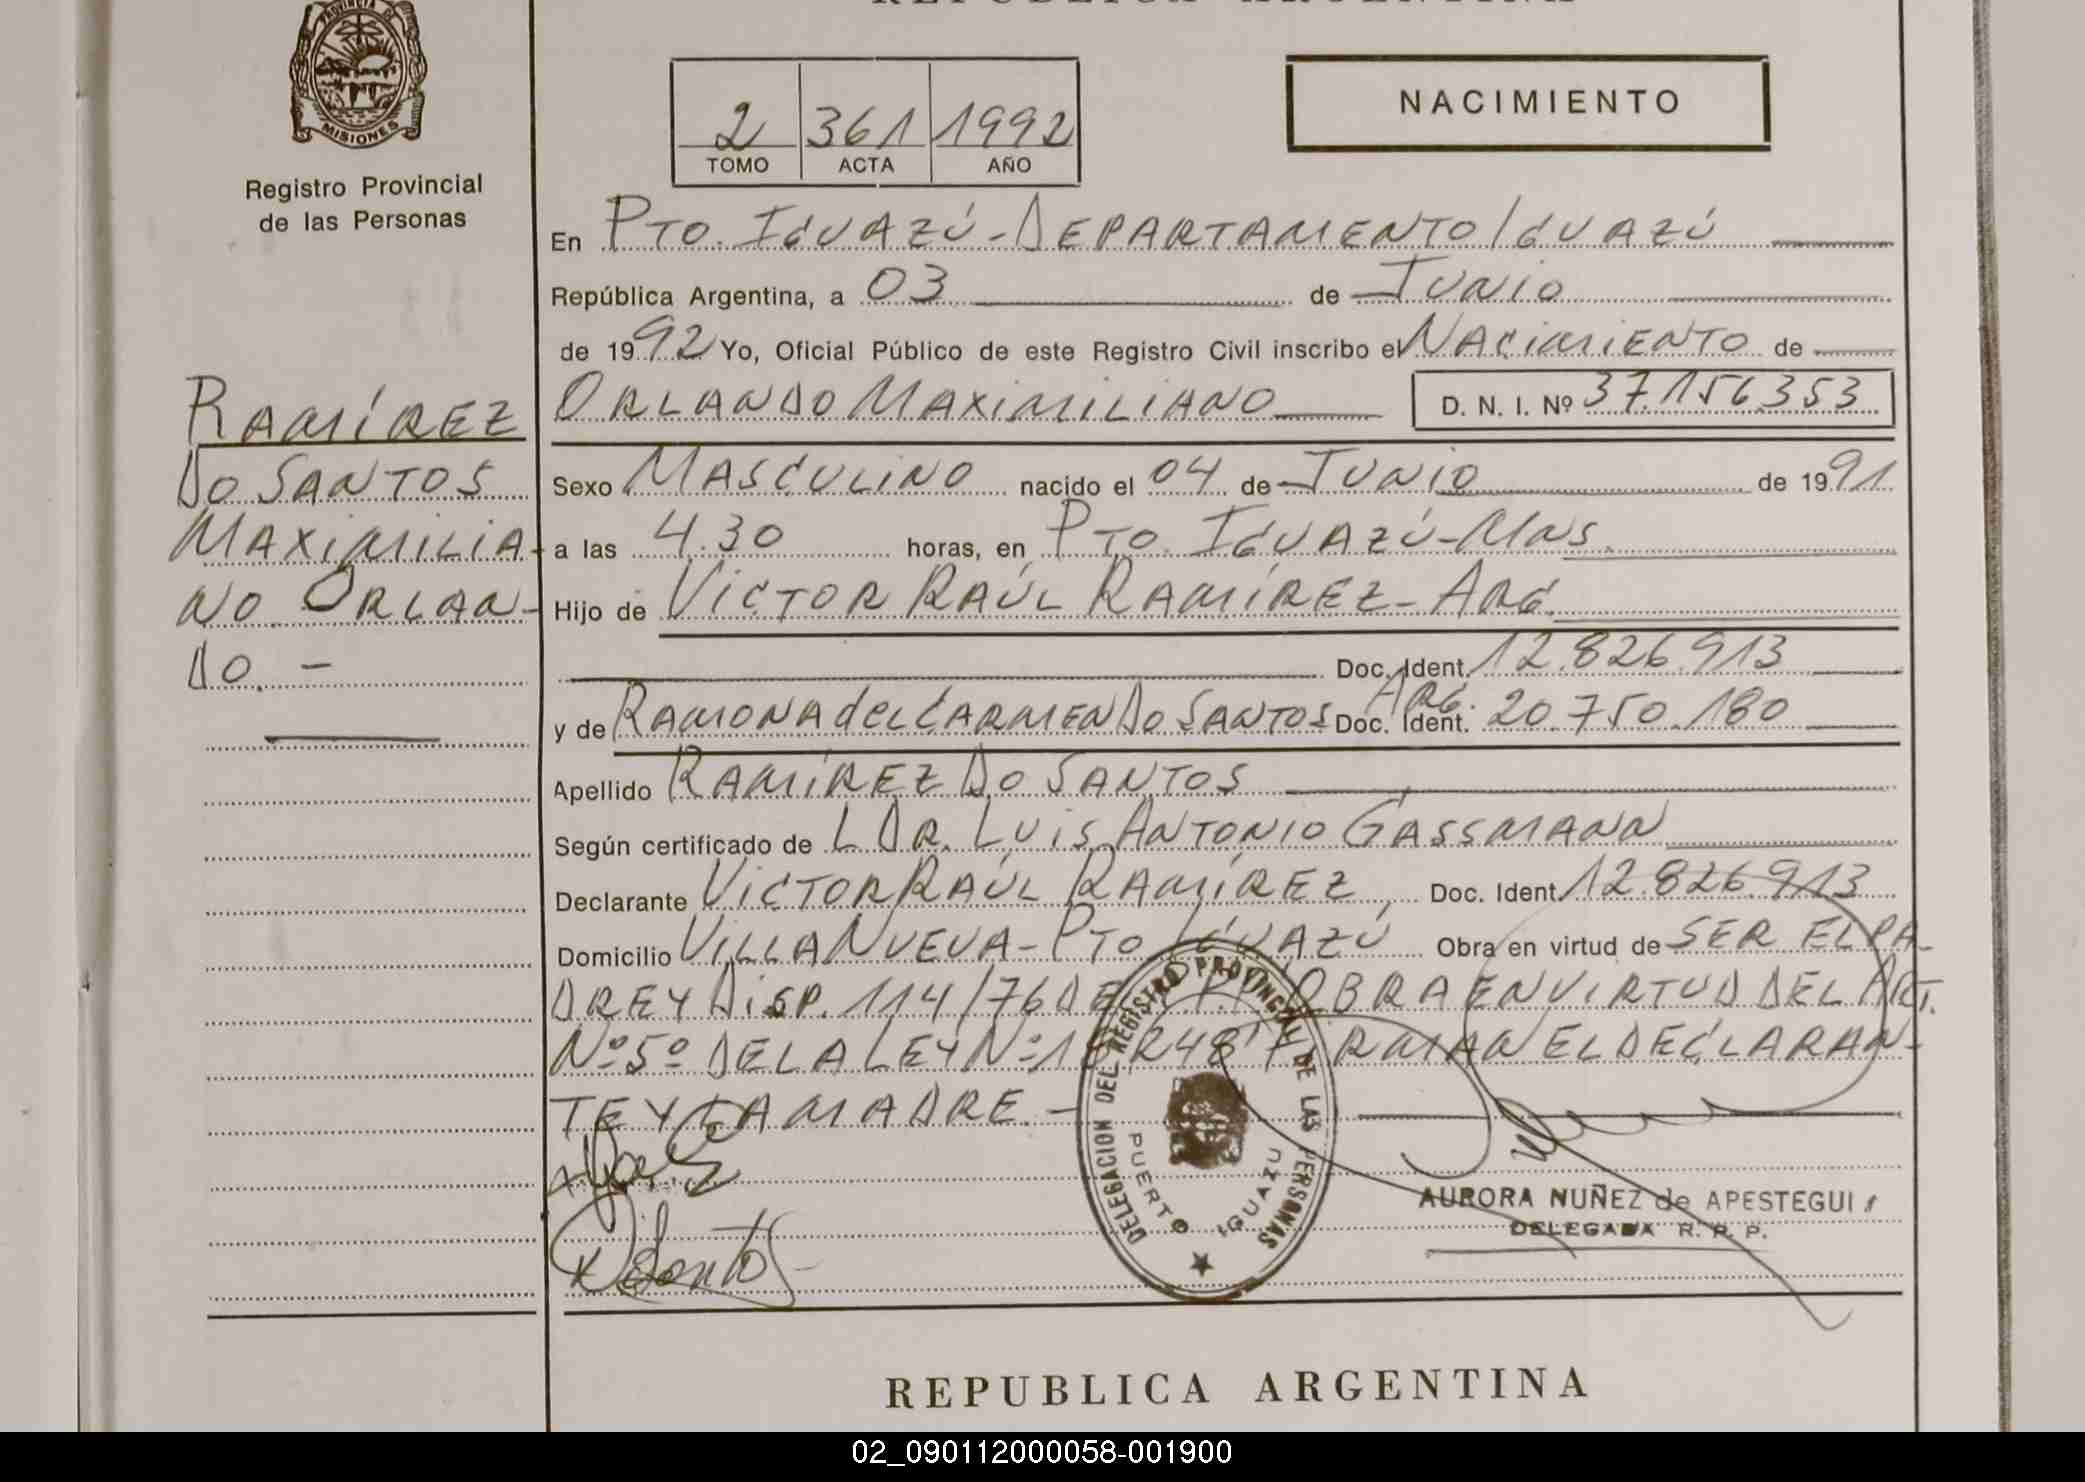 REPUBLICA ARGENTINA
PROVINCIA DE
MISIONES
Registro Provincial
de las Personas
2 361 1992
TOMO ACTA AÑO
NACIMIENTO
En PTO. IGUAZÚ - DEPARTAMENTO IGUAZÚ
República Argentina, a 03 de JUNIO
de 1992 Yo, Oficial Público de este Registro Civil inscribo el NACIMIENTO de
ORLANDO MAXIMILIANO D. N. I. Nº 37.156.353
RAMÍREZ
DO SANTOS
MAXIMILIA-
NO ORLAN-
DO. -
Sexo MASCULINO nacido el 04 de JUNIO de 1991
a las 4.30 horas, en PTO. IGUAZÚ - MNS.
Hijo de VICTOR RAÚL RAMÍREZ - ARG.
Doc. Ident. 12.826.913
y de RAMONA del CARMEN DO SANTOS ARG. Doc. Ident. 20.750.180
Apellido RAMÍREZ DO SANTOS
Según certificado de L DR. LUIS ANTONIO GASSMANN
Declarante VICTOR RAÚL RAMÍREZ, Doc. Ident. 12.826.913
Domicilio VILLA NUEVA - PTO IGUAZÚ Obra en virtud de SER EL PA-
DRE Y DISP. 114/76 DE OBRA EN VIRTUD DEL ART.
Nº 5º DE LA LEY Nº 18248 FIRMAN EL DECLARAN-
TE Y LA MADRE. -
DELEGACION DEL REGISTRO PROVINCIAL DE LAS PERSONAS
PUERTO IGUAZU
AURORA NUÑEZ de APESTEGUI
DELEGADA R. P. P.
REPUBLICA ARGENTINA
02_090112000058-001900